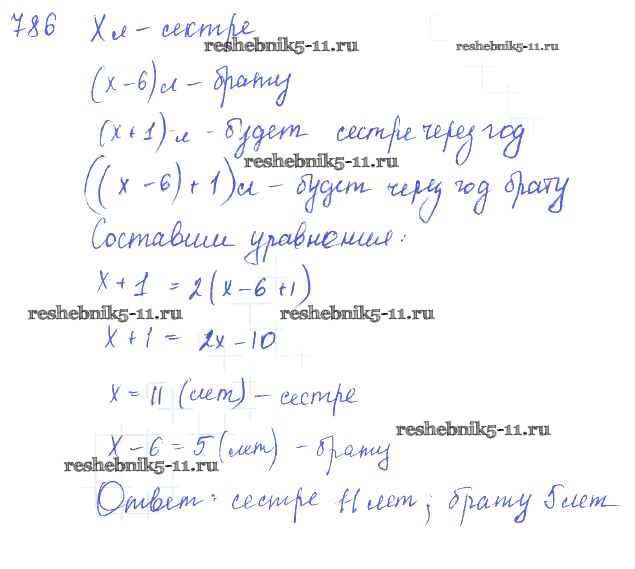 786 Х л – сестре
reshebnik5-11.ru reshebnik5-11.ru
(х – 6) л – брату
(х + 1) л - будет сестре через год
reshebnik5-11.ru
((х – 6) + 1) л – будет через год брату
Составим уравнения:
х + 1 = 2(х – 6 + 1)
reshebnik5-11.ru reshebnik5-11.ru
х + 1 = 2х – 10
х = 11 (лет) – сестре
reshebnik5-11.ru
х – 6 = 5 (лет) – брату
reshebnik5-11.ru
Ответ: сестре 11 лет; брату 5 лет